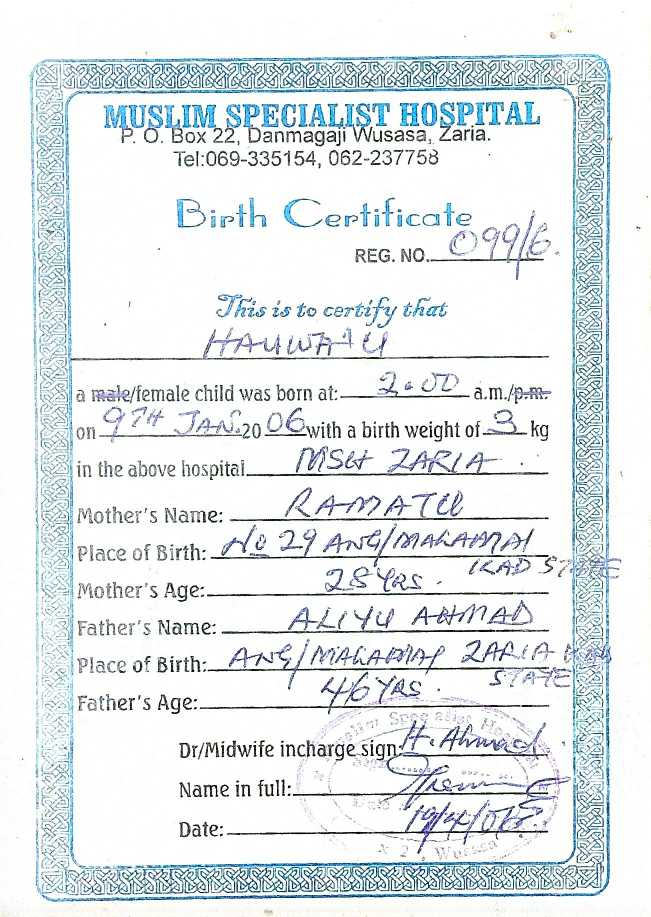 MUSLIM SPECIALIST HOSPITAL
P. O. Box 22, Danmagaji Wusasa, Zaria.
Tel:069-335154, 062-237758
Birth Certificate
REG. NO. 099/6.
This is to certify that
HAUWA'U
a male/female child was born at: 2.00 a.m./p.m.
on 9TH JAN. 20 06 with a birth weight of 3 kg
in the above hospital MSH ZARIA
Mother's Name: RAMATU
Place of Birth: No 29 ANG/MAKAMAI
KAD STATE
Mother's Age: 28 YRS.
Father's Name: ALIYU AHMAD
Place of Birth: ANG/MAKAMAI ZARIA KAD
STATE
Father's Age: 46 YRS.
Dr/Midwife incharge sign: H. Ahmad
Name in full:
Date: 19/4/